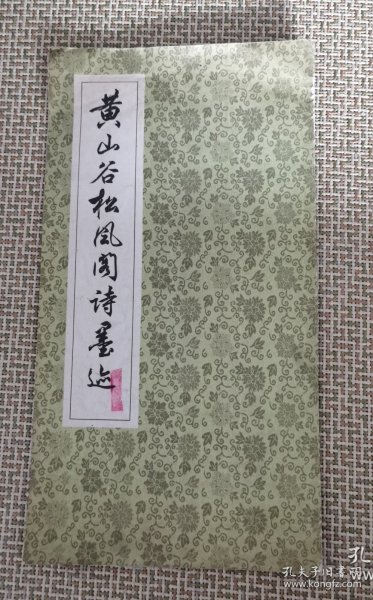 黄山谷松风阁诗墨迹
孔夫子旧书网
www.kongfz.com
孔